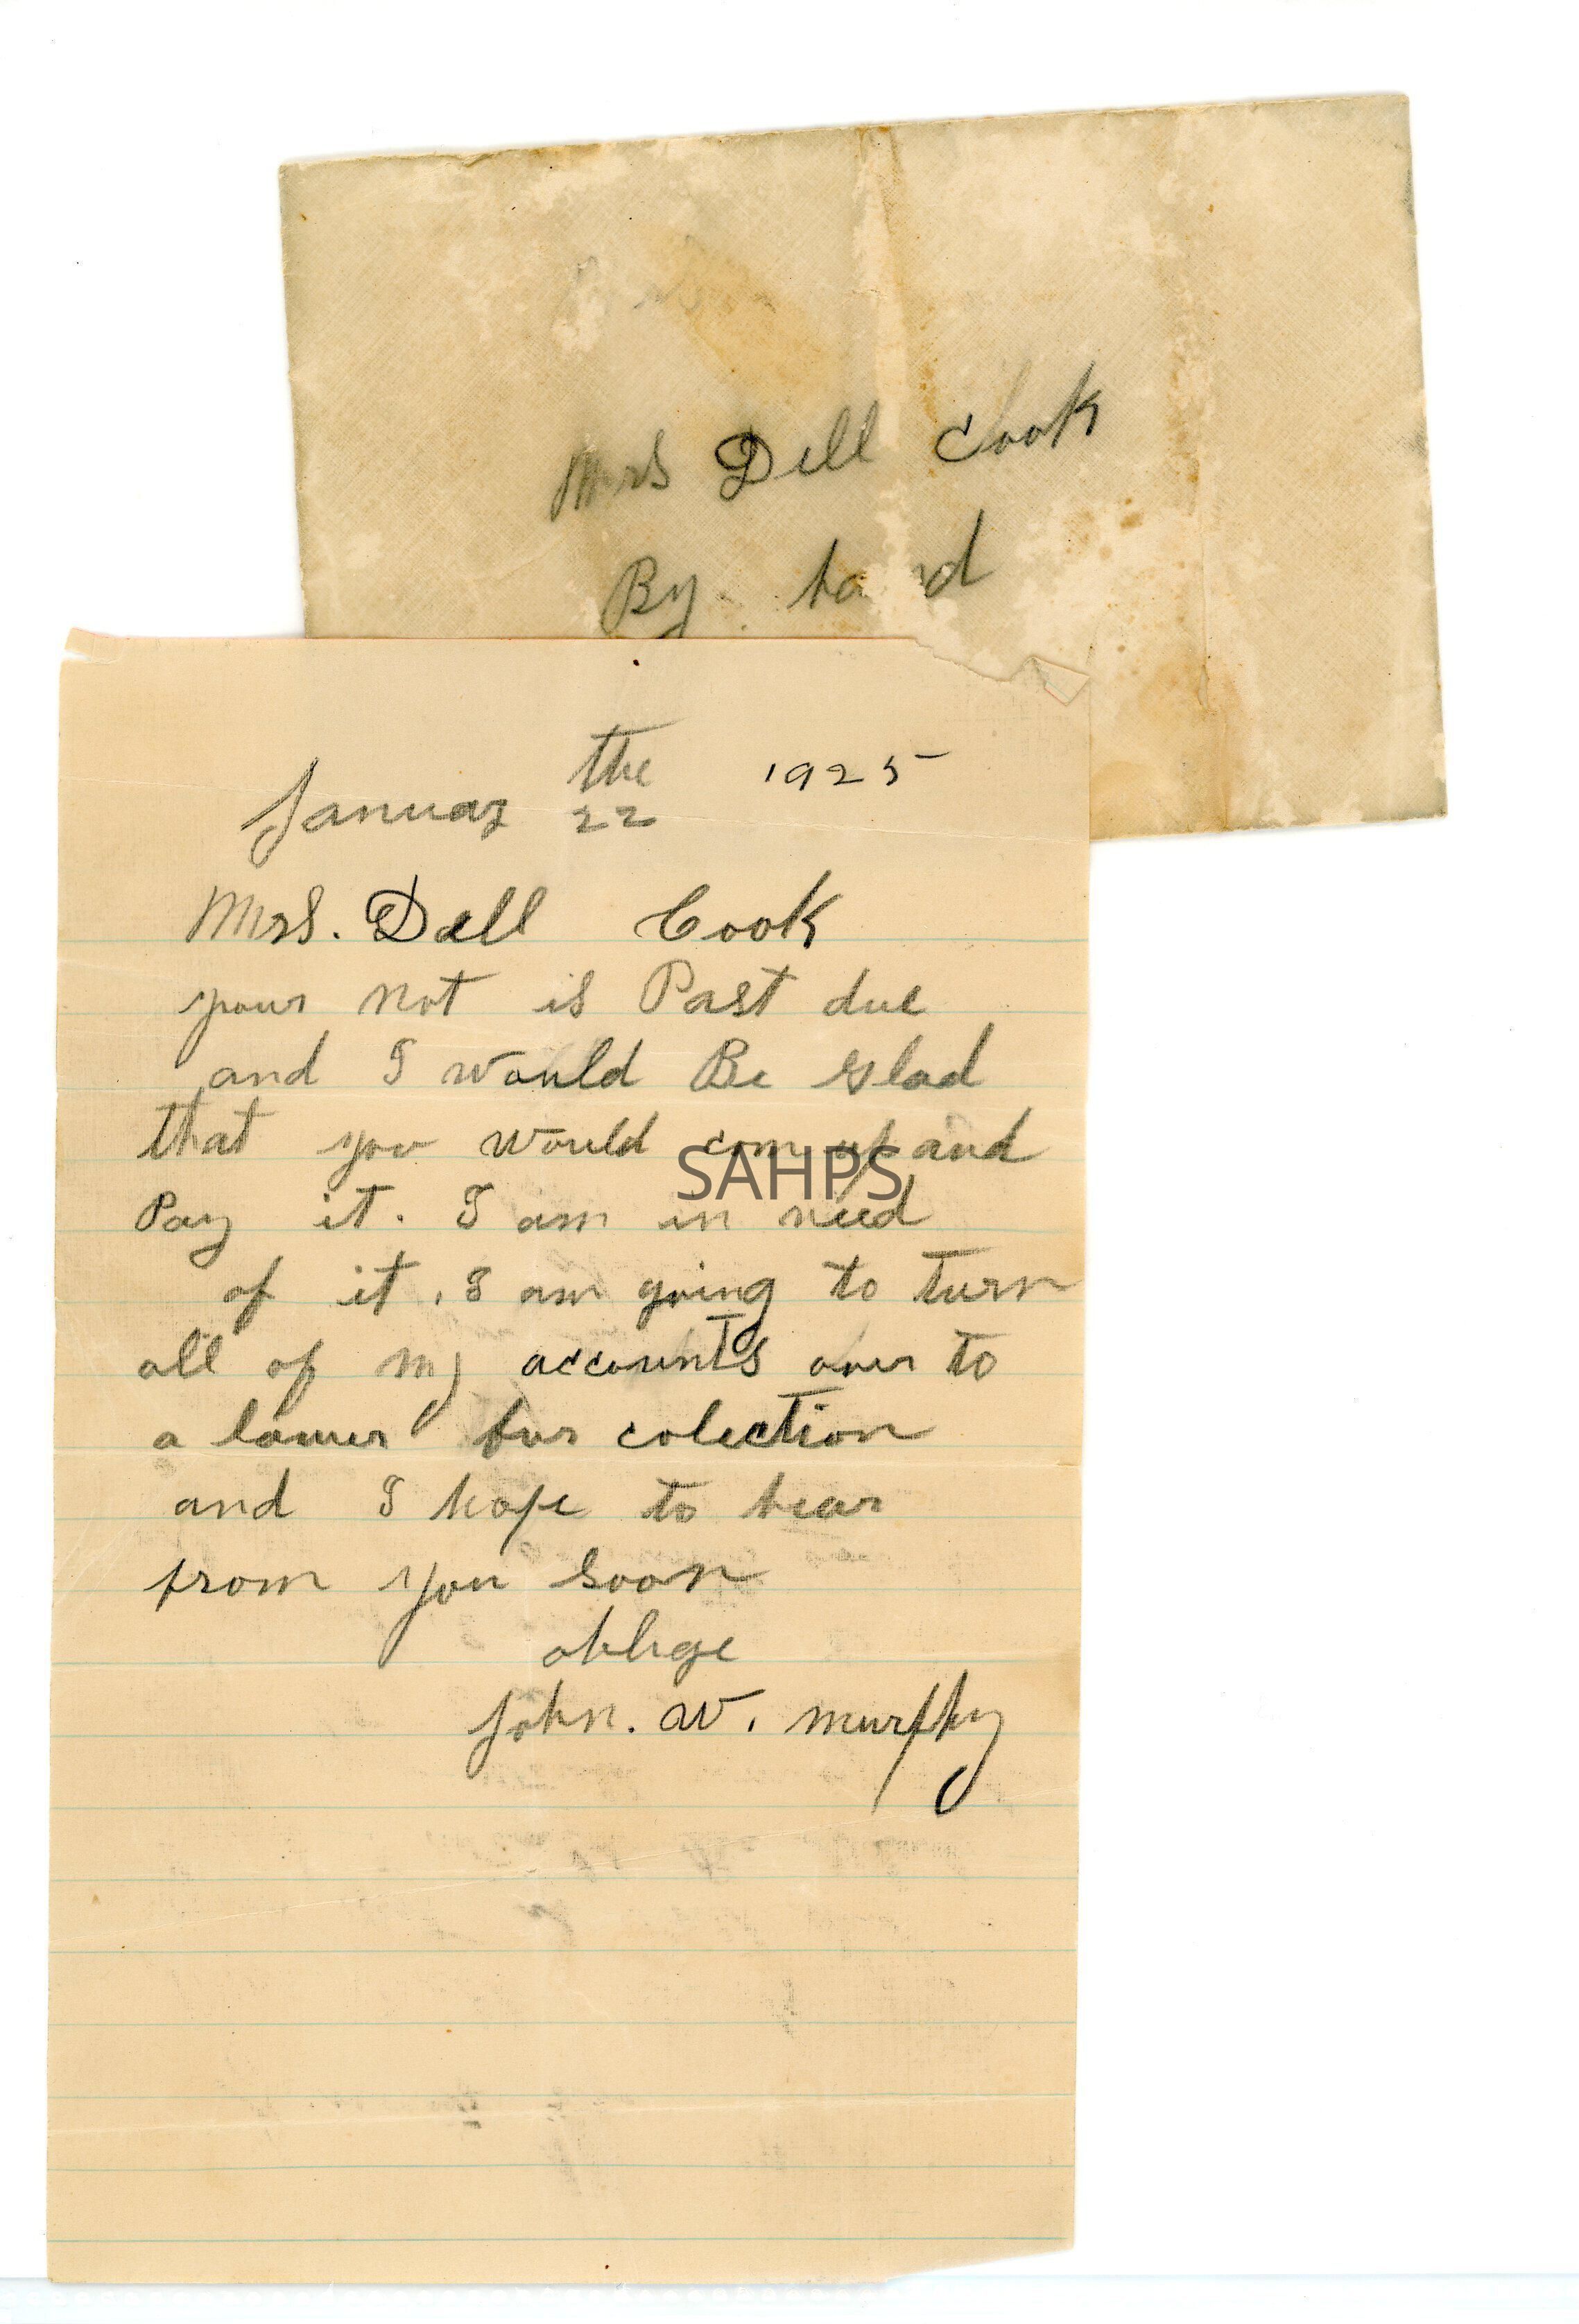 Mrs Dell Cook
By hand
the 1925
Januay 22
Mrs. Dell Cook
your not is Past due
and I would Be glad
that you would com up and
SAHPS
Pay it. I am in need
of it. I am going to turn
all of my accounts over to
a lawer for colection
and I hope to hear
from you soon
oblige
John. W. Murphy